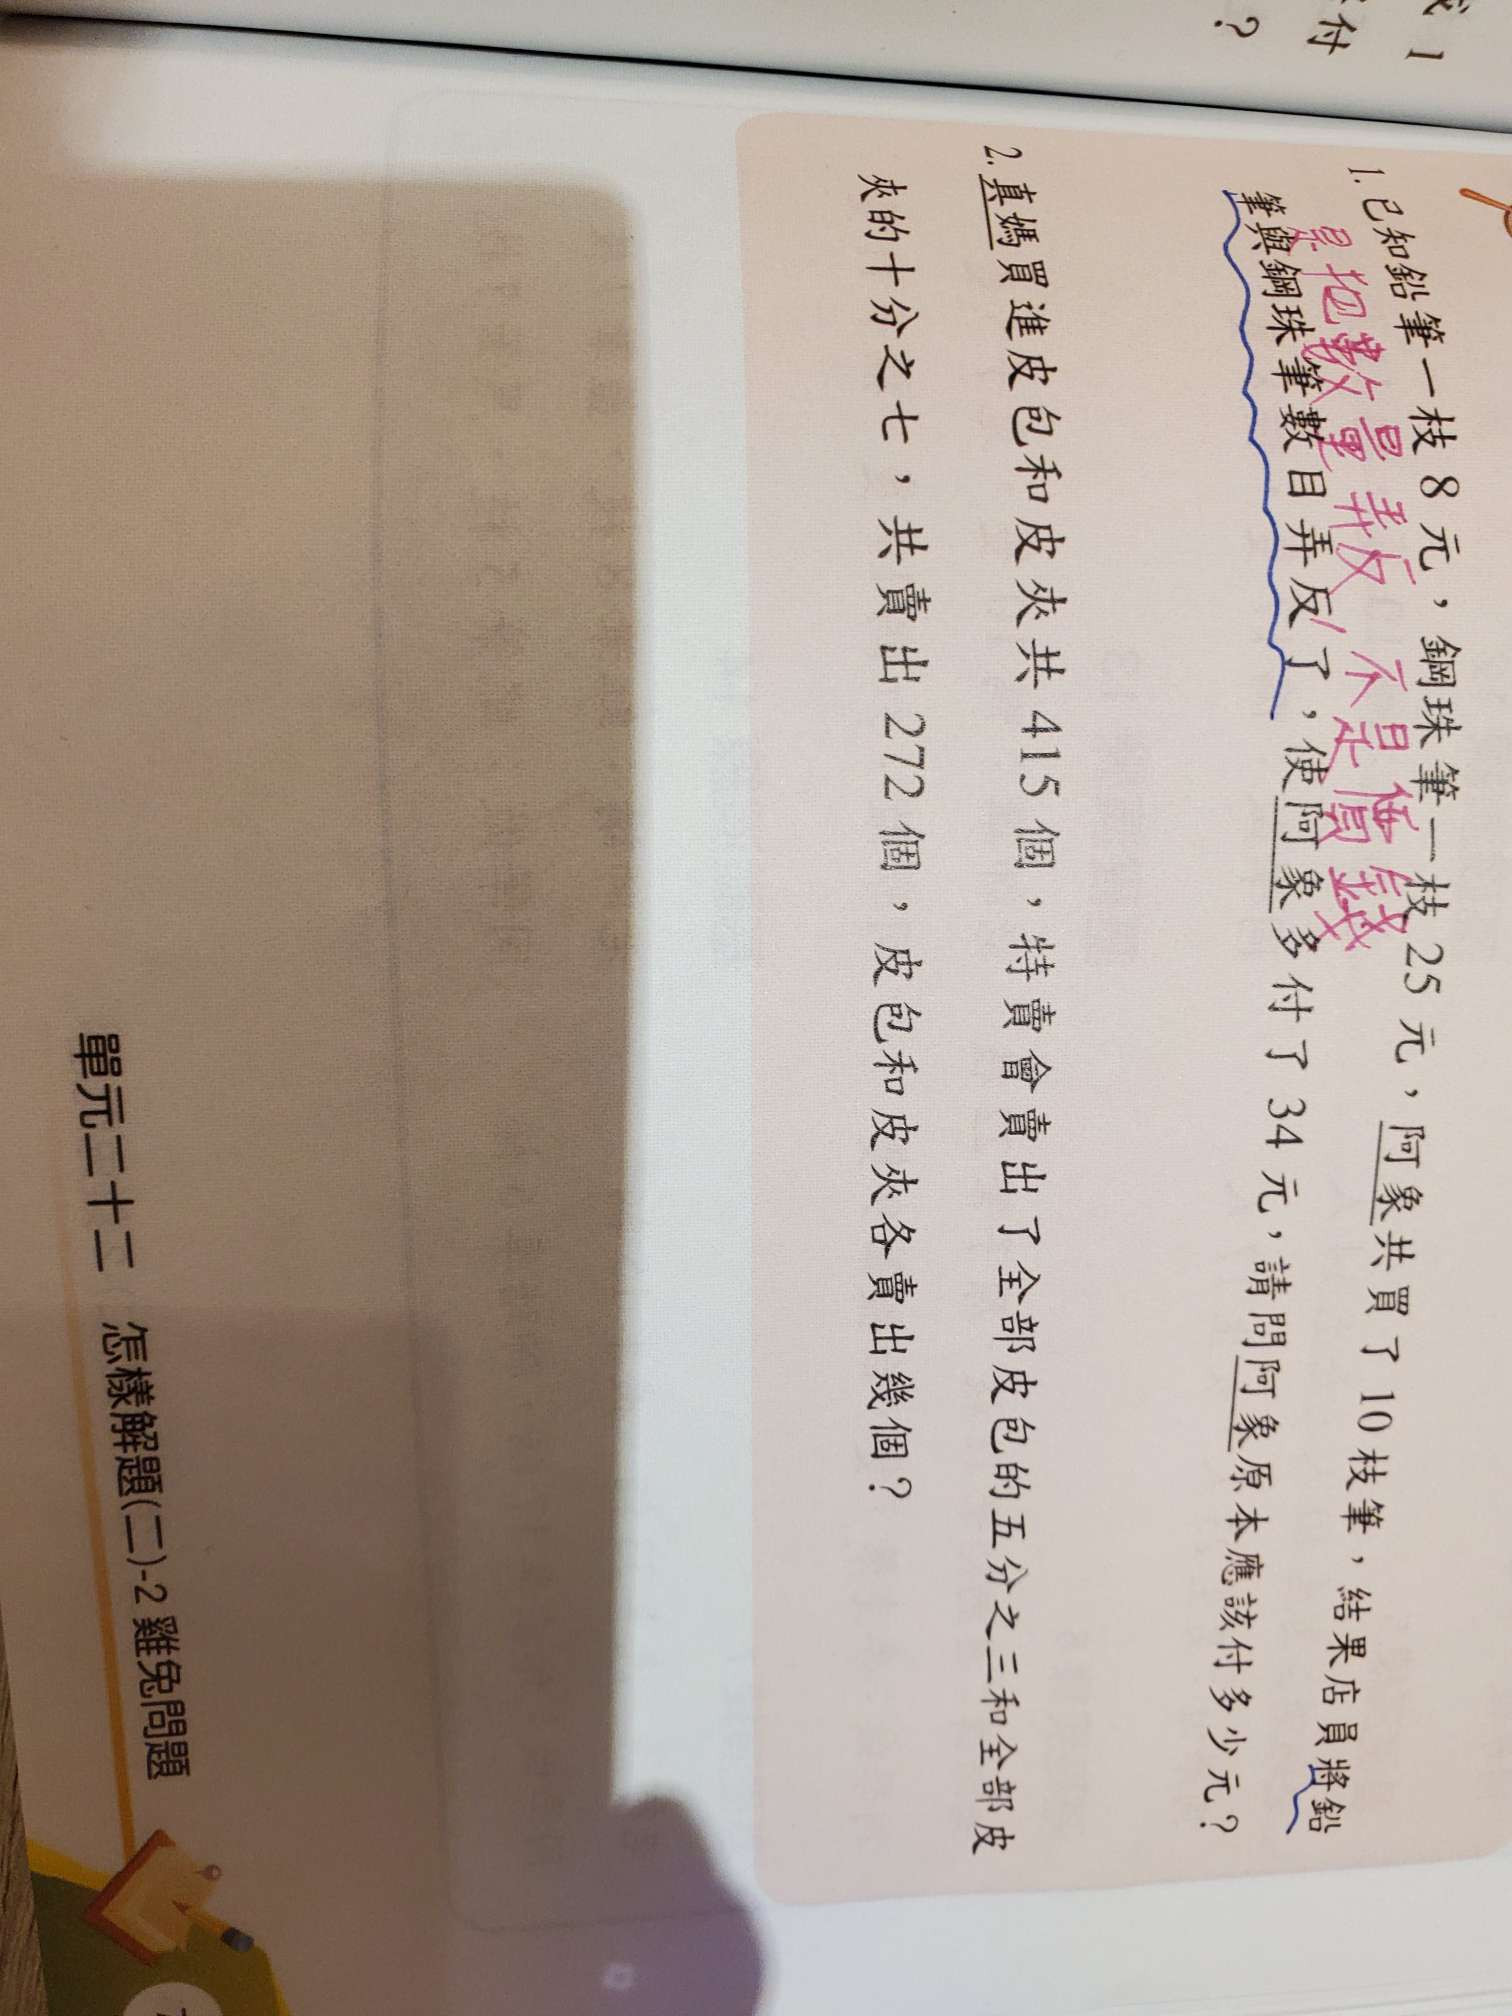 1
付
?
1. 已知鉛筆一枝 8 元，鋼珠筆一枝 25 元，阿象共買了 10 枝筆，結果店員將鉛
是把數量弄反，不是價錢
筆與鋼珠筆數目弄反了，使阿象多付了 34 元，請問阿象原本應該付多少元？
2. 真媽買進皮包和皮夾共 415 個，特賣會賣出了全部皮包的五分之三和全部皮
夾的十分之七，共賣出 272 個，皮包和皮夾各賣出幾個？
單元二十二 怎樣解題(二)-2 雞兔問題